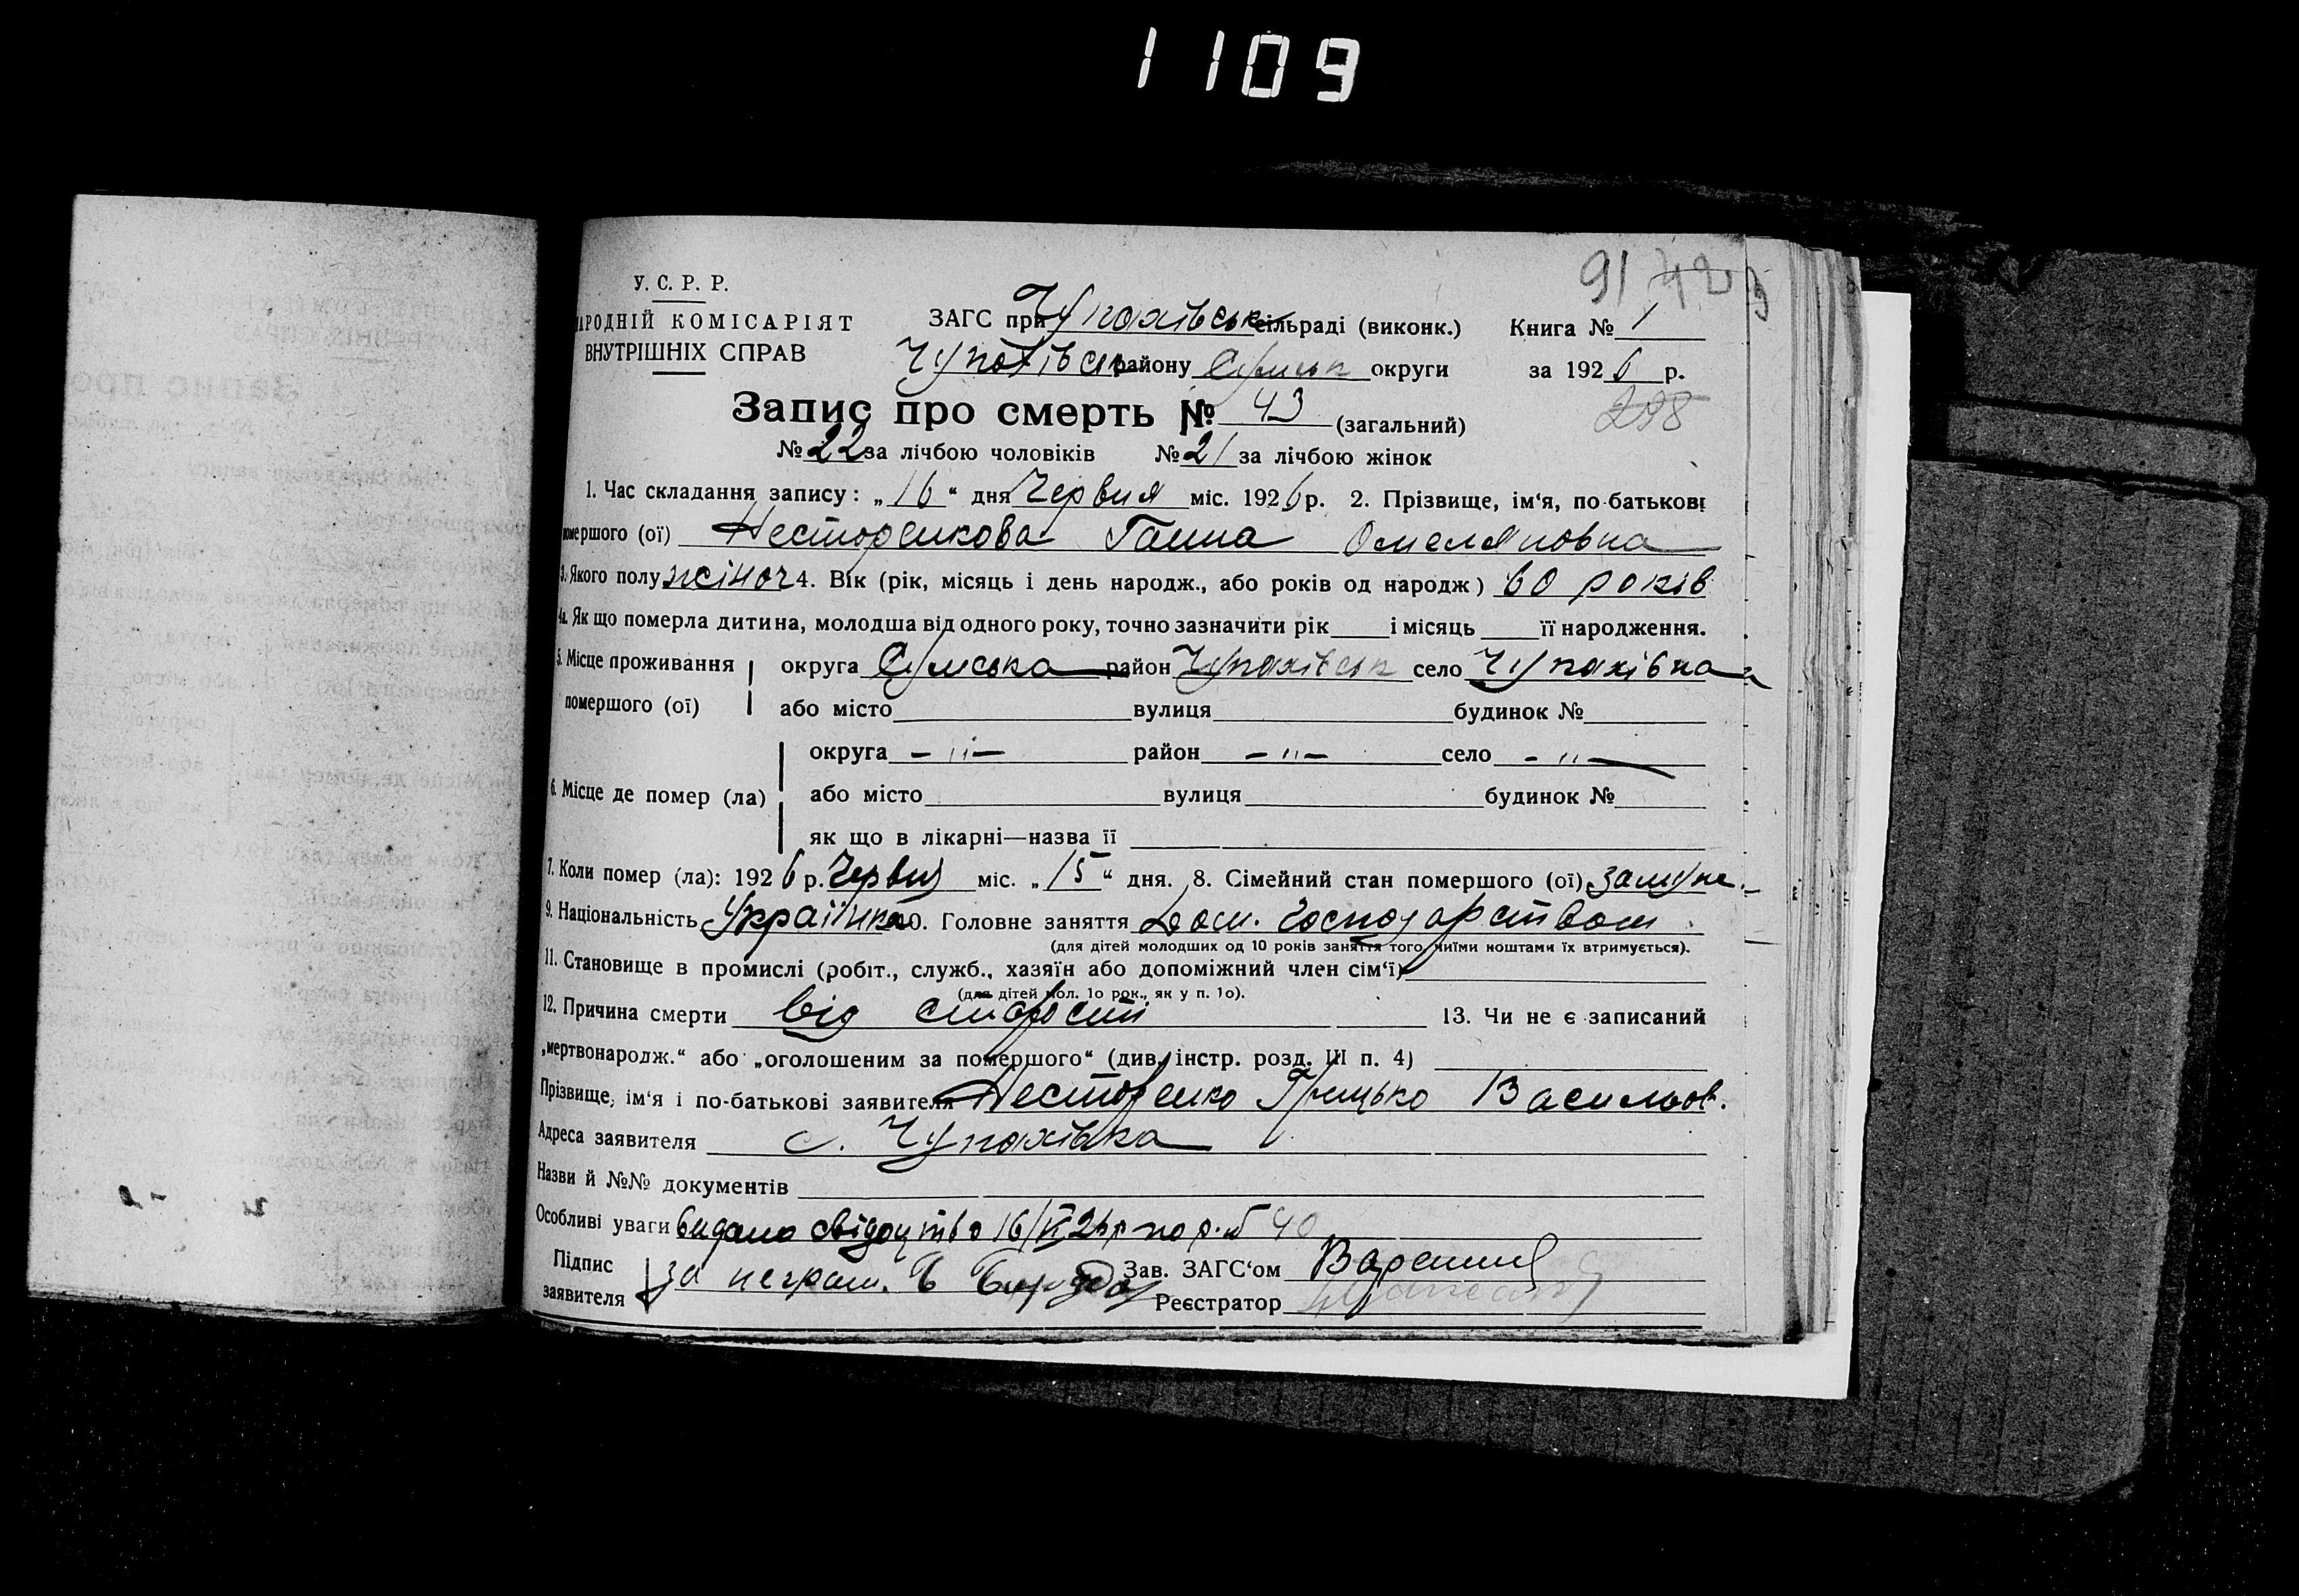 1109
91 423
У. С. Р. Р.
НАРОДНІЙ КОМІСАРІЯТ
ВНУТРІШНІХ СПРАВ
ЗАГС при Чупахівськ сільраді (виконк.) Книга № 1
Чупахівськ району Сумськ округи за 1926 р.
298
Запис про смерть № 43 (загальний)
№ 22 за лічбою чоловіків № 21 за лічбою жінок
1. Час складання запису: „16“ дня Червня міс. 1926 р. 2. Прізвище, ім‘я, по-батькові
помершого (ої) Несторенкова Ганна Омеляновна
3. Якого полу жіноч 4. Вік (рік, місяць і день народж., або років од народж) 60 років
4а. Як що померла дитина, молодша від одного року, точно зазначити рік і місяць її народження.
5. Місце проживання помершого (ої) округа Сумська район Чупахівськ село Чупахівка
або місто вулиця будинок №
6. Місце де помер (ла) округа –〃– район –〃– село –〃–
або місто вулиця будинок №
як що в лікарні—назва її
7. Коли помер (ла): 1926 р. Червня міс. „15“ дня. 8. Сімейний стан помершого (ої) замужн.
9. Національність Українка 10. Головне заняття Дом. господарством
(для дітей молодших од 10 років заняття того, чиїми коштами їх втримується).
11. Становище в промислі (робіт., служб., хазяїн або допоміжний член сім‘ї)
(для дітей мол. 1о рок., як у п. 1о).
12. Причина смерти від старости 13. Чи не є записаний
„мертвонародж.“ або „оголошеним за помершого“ (див. інстр. розд. ІІІ п. 4)
Прізвище, ім‘я і по-батькові заявителя Несторенко Грицько Васильов.
Адреса заявителя с. Чупахівка
Назви й №№ документів
Особливі уваги видано свідоцтво 16/VI 26 р по р. № 40
Підпис заявителя за неграм. Зав. ЗАГС‘ом
Реєстратор